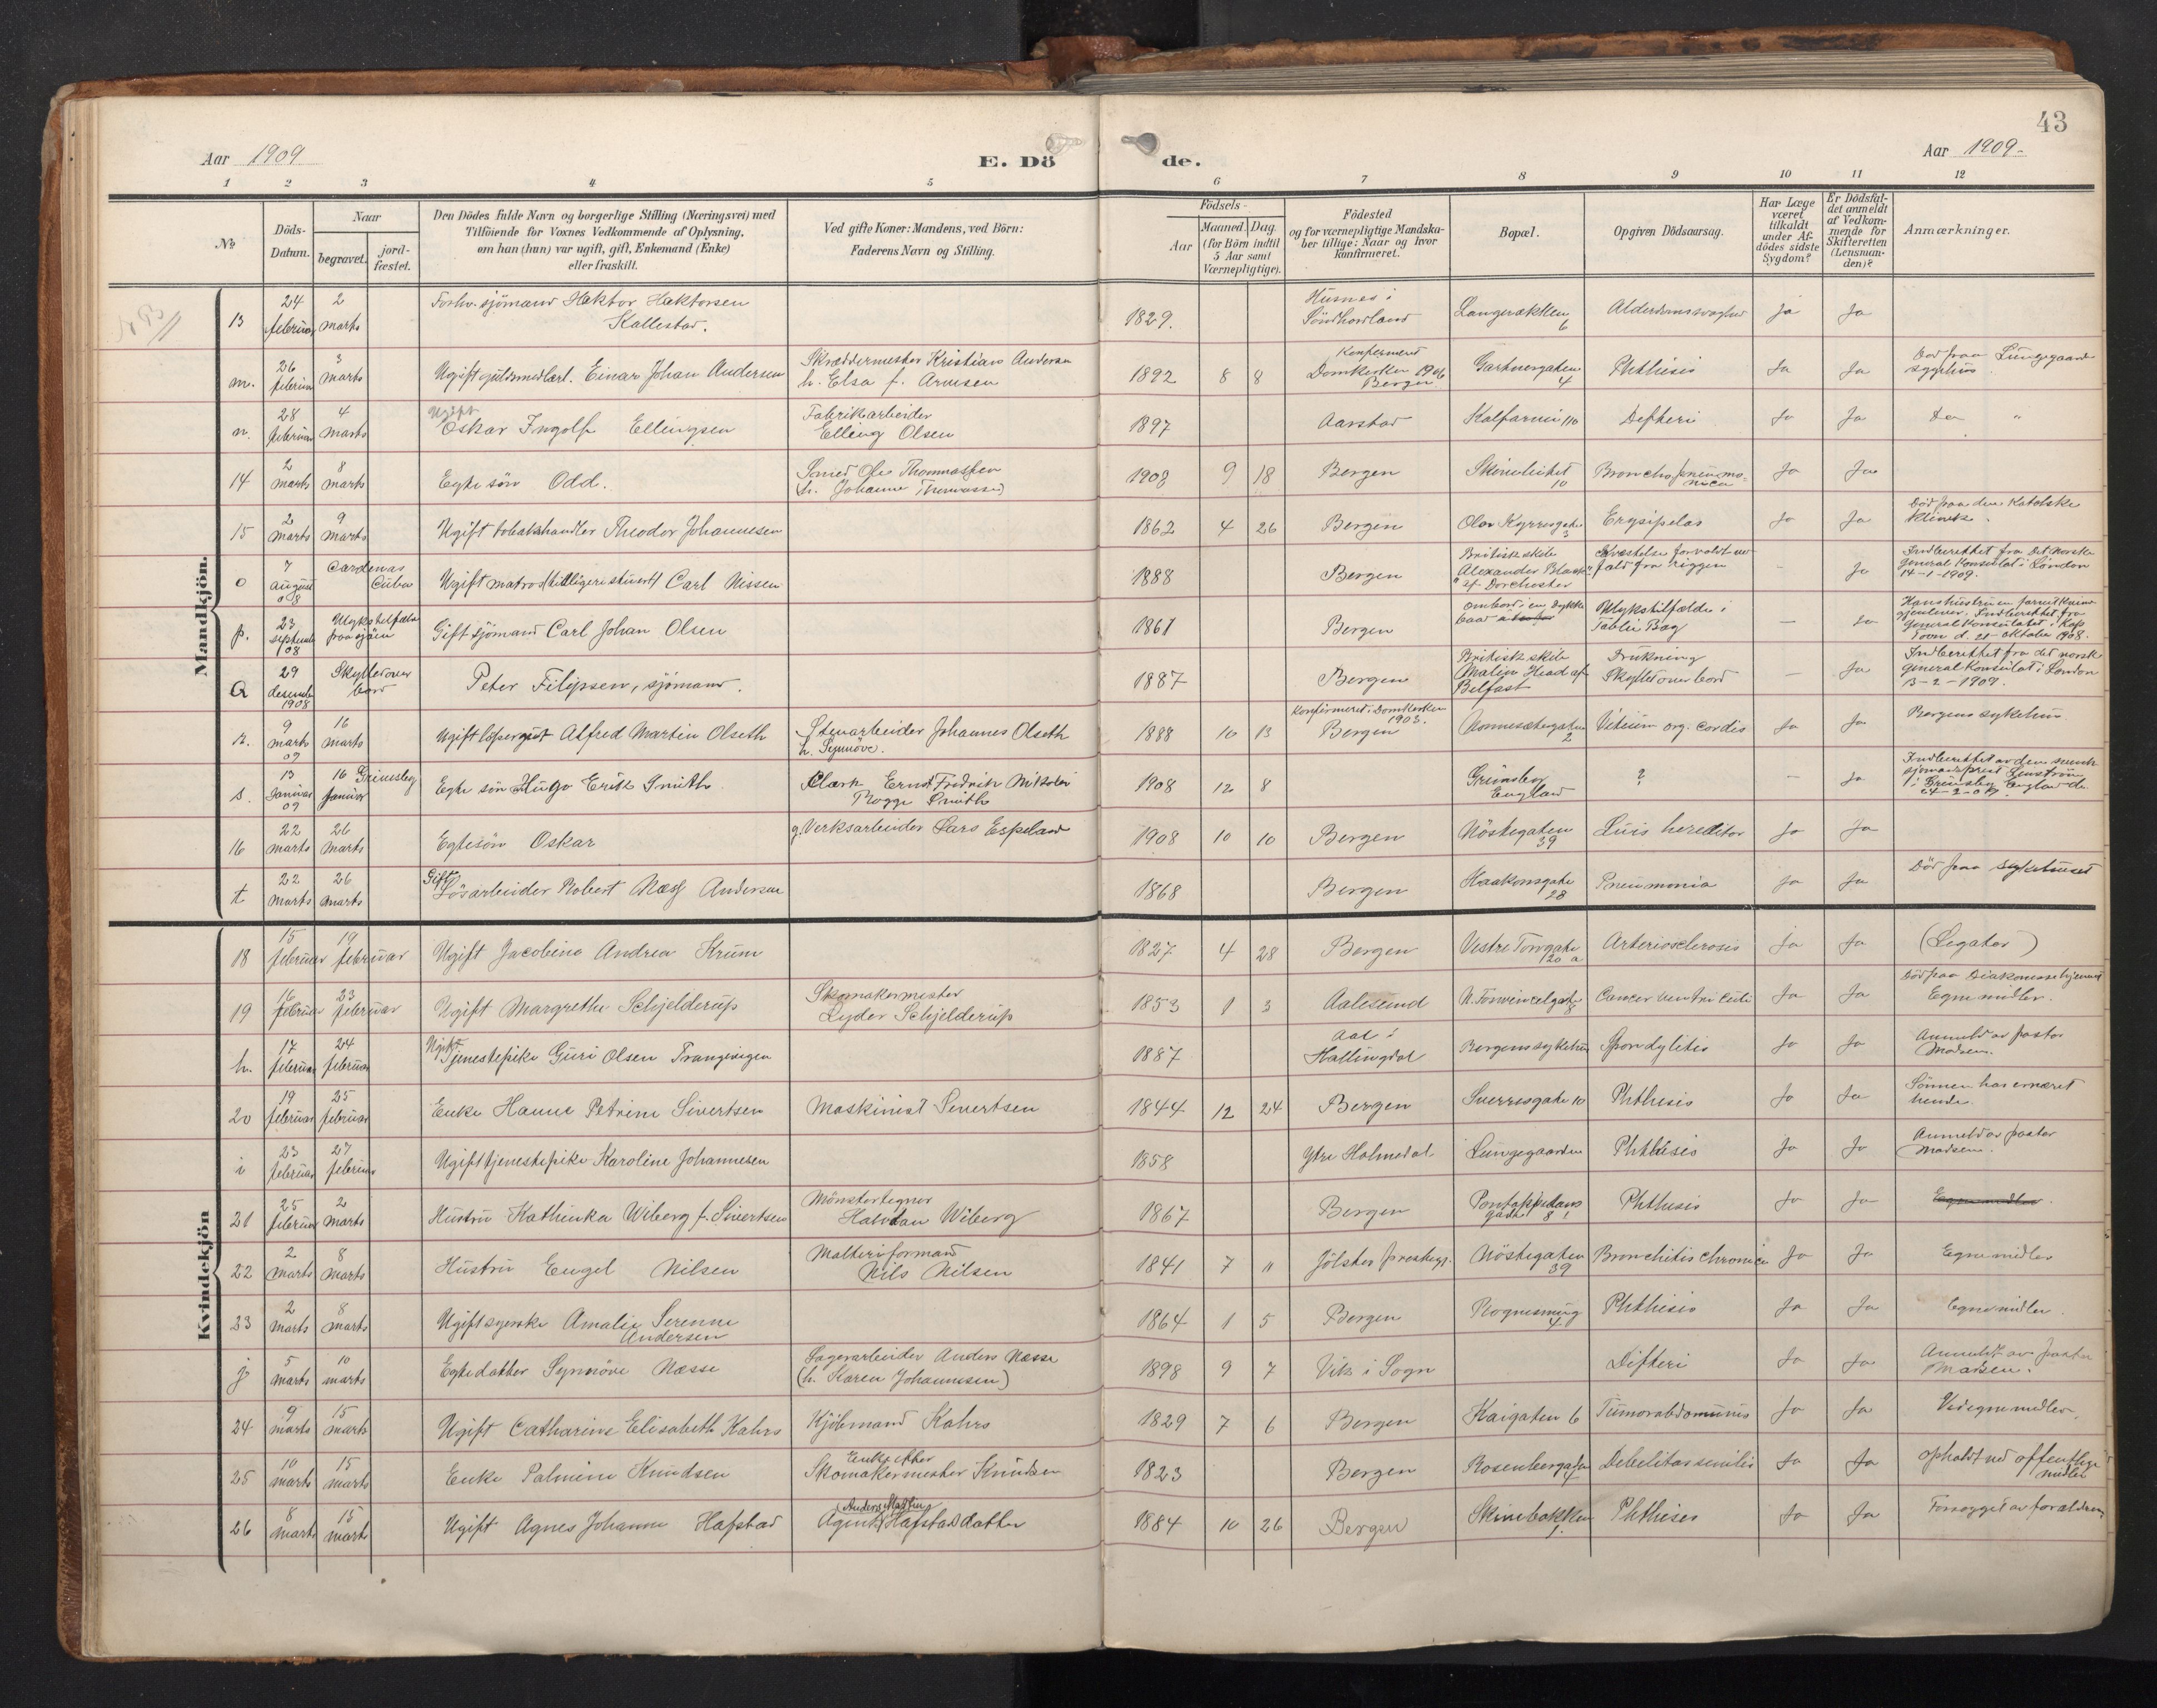 43
Aar 1909
E. Dö
de.
Aar 1909-
1 2 3 4 5 6 7 8 9 10 11 12
No
Döds-
Datum.
Naar
begravet.
jord-
fæstet.
Den Dödes fulde Navn og borgerlige Stilling (Næringsvei) med
Tilföiende for Voxnes Vedkommende af Oplysning,
om han (hun) var ugift, gift, Enkemand (Enke)
eller fraskilt.
Ved gifte Koner: Mandens, ved Börn:
Faderens Navn og Stilling.
Födsels-
Aar
Maaned. Dag.
(for Börn indtil
5 Aar samt
Værnepligtige).
Födested
og for værnepligtige Mandska-
ber tillige: Naar og hvor
konfirmeret.
Bopæl.
Opgiven Dödsaarsag.
Har Læge
været
tilkaldt
under Af-
dödes sidste
Sygdom?
Er Dödsfal-
det anmeldt
af Vedkom-
mende for
Skifteretten
(Lensman-
den)?
Anmærkninger.
Mandkjön.
13 24 februar 2 marts Forhv. sjömand Hektor Hektorsen Kallestad. 1829. Husnes i Söndhordland Langerækken 6 Ja Ja
m. 26 februar 3 marts Ugift Einar Johan Andersen Skræddermester Kristian Andersen h. Elsa f. Arnesen 1892 8 8 Konfirmerd Domkirken 1906 Bergen Gartnergaten 4 Phthisis Ja Ja Död paa Lungegaards sygehus.
n. 28 februar 4 marts Ugift Oskar Ingolf Ellingsen Fabrikarbeider Elling Olsen 1897 Aarstad Kalfarvei 110 Defteri Ja Ja Do "
14 2 marts 8 marts Egte sön Odd. Smed Ole Thommassen (h. Johanne Thomassen) 1908 9 18 Bergen 10 Broncho pneumonica Ja Ja
15 2 marts 9 marts Ugift tobakshandler Theodor Johannesen 1862 4 26 Bergen Olav Kyrresgate 3 Erysipelas Ja Ja Död paa den Katolske klinik.
o 7 august 08 Cardenas Cuba Ugift matros (tidligere stuert) Carl Nissen 1888 Bergen Britisk skib Alexander Black" af Dorchester Kvæstelse forvoldt ved fald fra riggen - Ja Indberettet fra det norske general Konsulat i London 14-1-1909.
p. 23 septemb 1908 Ulykkestilfælde paa sjöen Gift sjömand Carl Johan Olsen 1861 Bergen ombord i en dykke baad Ulykstilfælde i Table Bay - Ja Indberettet fra General Konsulatet i Kap Town d. 21 oktober 1908.
Q 29 desemb 1908 Skyllet over bord Peter Filipsen, sjömand. 1887 Bergen Britisk skib Malin Head af Belfast Drukning Skyllet over bord - Ja Indberettet fra det norske general Konsulat i London 13-2-1909.
R. 9 marts 09 16 marts Ugift löpergut Alfred Martin Olseth Stenarbeider Johannes Olseth h. Synnöve. 1888 10 13 Konfirmeret i Domkirken 1903. Bergen Nonnesætergaten 2 Vitium org. cordis Ja Ja Bergens sykehus.
s. 13 Januar 09 16 Januar Grimsby Egte sön Hugo Eritz Smith Clærk Ernst Fredrik Nikolai Rogge Smith 1908 12 8 Grimsby England ? - Ja Indberettet av den svenske sjömandsprest i Grimsby England
16 22 marts 26 marts Egte sön Oskar g. Verksarbeider Lars Espeland 1908 10 10 Bergen Nöstegaten 39 Luis hereditar Ja Ja
t 22 marts 26 marts Gift Lösarbeider Robert Næss Andersen 1868 Bergen Haakonsgate 28 Pneumonia Ja Ja Död paa sykehuset
Kvindekjön
18 15 februar 19 februar Ugift Jacobine Andrea Krum 1827 4 28 Bergen Vestre Torvgate 20 a Arteriosclerosis Ja Ja (Legater)
19 16 februar 23 februar Ugift Margrethe Schjelderup Skomakermester Lyder Schjelderup 1853 1 3 Aalesund 8 Cancer ventriculi Ja Ja Död paa Diakonissehjemmet Egne midler.
h. 17 februar 24 februar Ugift Tjenestepike Guri Olsen 1887 Aal i Hallingdal Bergens sykehus Spondylitis Ja Ja Anmeldt av pastor Madsen.
20 19 februar 25 februar Enke Hanne Petrine Sivertsen Maskinist Sivertsen 1844 12 24 Bergen Sverresgate 10 Phthisis Ja Ja Sönnen har ernæret hende.
i 23 februar 27 februar Ugift tjenestepike Karoline Johannesen 1858 Ytre Holmedal Lungegaarden Phthisis Ja Ja Anmeldt av pastor Madsen.
21 25 februar 2 marts Hustru Kathinka Wiberg f. Sivertsen Mönstertegner Halvdan Wiberg 1867 Bergen Pontoppidans gade 8 Phthisis Ja Ja Egne midler.
22 2 marts 8 marts Hustru Engel Nilsen Malteriformand Nils Nilsen 1841 7 11 Jölster prestegj. Nöstegaten 39 Bronchitis chronica Ja Ja Egne midler
23 2 marts 8 marts Ugift syerske Amalie Serenne Andersen 1864 1 5 Bergen 4 Phthisis Ja Ja Egne midler.
j 5 marts 10 marts Egte datter Synnöve Næsse Lagerarbeider Anders Næsse (h. Karen Johannesen) 1898 9 7 Vik i Sogn Difteri Ja Ja Anmeldt av pastor Madsen.
24 9 marts 15 marts Ugift Catharine Elisabeth Kahrs Kjöbmand Kahrs 1829 7 6 Bergen Kaigaten 6 Tumor abdominis Ja Ja Ved egne midler.
25 10 marts 15 marts Enke Palmine Knudsen Enke efter Skomakermester Knudsen 1823 Bergen Rosenbergaten 4 Debelitas senilis Ja Ja opholdt ved offentlige midler
26 8 marts 15 marts Ugift Agnes Johanne Hafstad Agent Hafstad datter 1884 10 26 Bergen Skivebakken 1 Phthisis Ja Ja Forsörget av forældrene